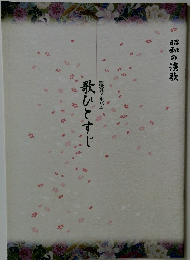 昭和の演歌
歌ひとすじ